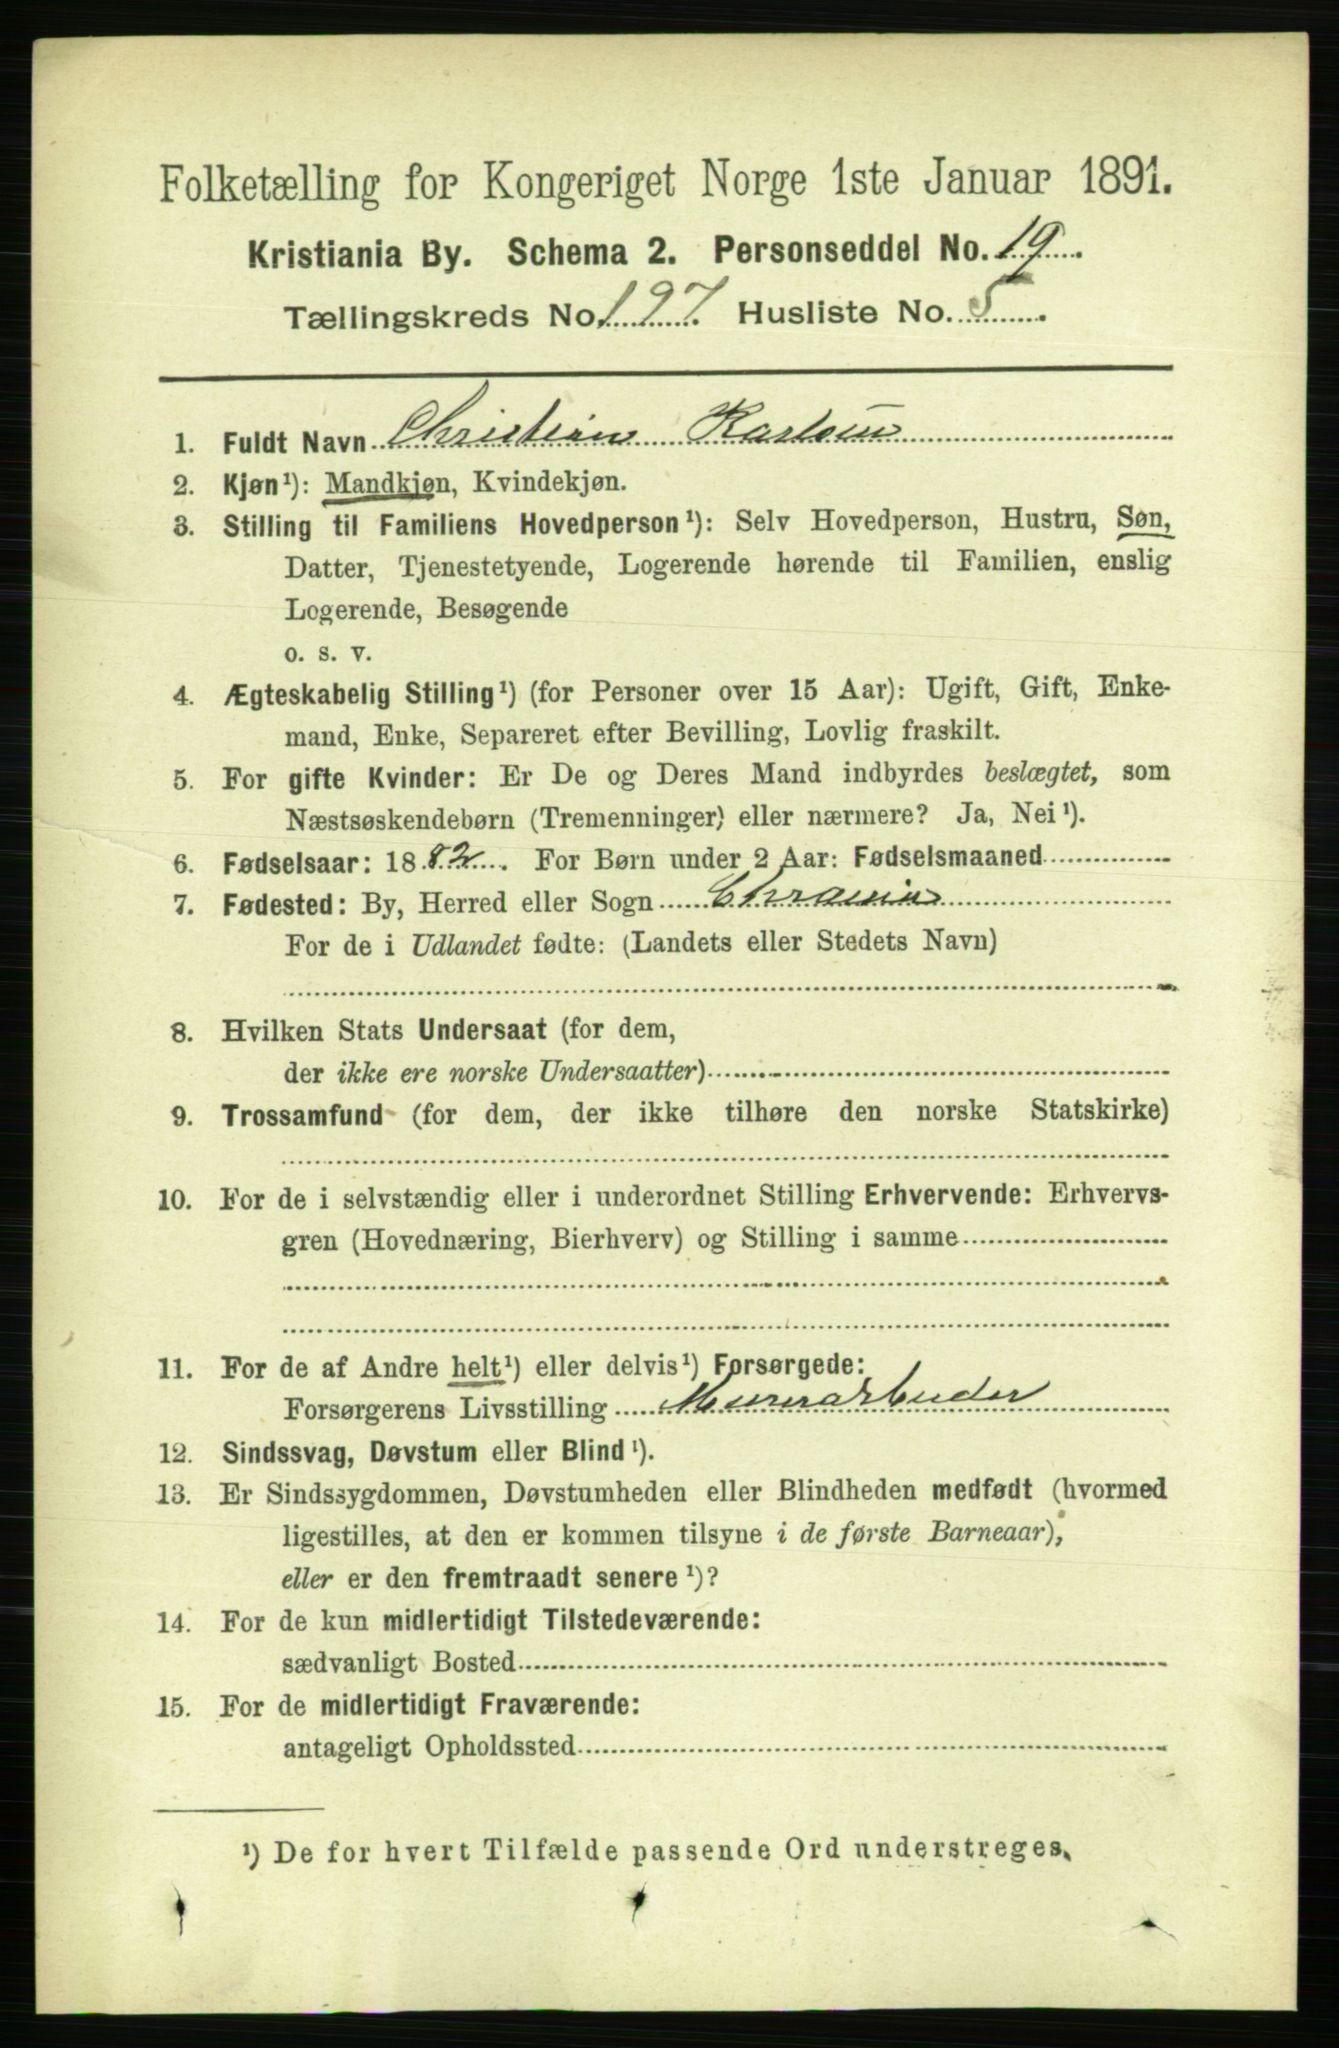 Folketælling for Kongeriget Norge 1ste Januar 1891.
Kristiania By. Schema 2. Personseddel No. 19
Tællingskreds No. 197 Husliste No. 5
1. Fuldt Navn Christian Karlsen
2. Kjøn¹): Mandkjøn, Kvindekjøn.
3. Stilling til Familiens Hovedperson¹): Selv Hovedperson, Hustru, Søn,
Datter, Tjenestetyende, Logerende hørende til Familien, enslig
Logerende, Besøgende
o. s. v.
4. Ægteskabelig Stilling¹) (for Personer over 15 Aar): Ugift, Gift, Enke-
mand, Enke, Separeret efter Bevilling, Lovlig fraskilt.
5. For gifte Kvinder: Er De og Deres Mand indbyrdes beslægtet, som
Næstsøskendebørn (Tremenninger) eller nærmere? Ja, Nei¹).
6. Fødselsaar: 1882. For Børn under 2 Aar: Fødselsmaaned
7. Fødested: By, Herred eller Sogn Chrania
For de i Udlandet fødte: (Landets eller Stedets Navn)
8. Hvilken Stats Undersaat (for dem,
der ikke ere norske Undersaatter)
9. Trossamfund (for dem, der ikke tilhøre den norske Statskirke)
10. For de i selvstændig eller i underordnet Stilling Erhvervende: Erhvervs-
gren (Hovednæring, Bierhverv) og Stilling i samme
11. For de af Andre helt¹) eller delvis¹) Forsørgede:
Forsørgerens Livsstilling Murerarbeider
12. Sindssvag, Døvstum eller Blind¹).
13. Er Sindssygdommen, Døvstumheden eller Blindheden medfødt (hvormed
ligestilles, at den er kommen tilsyne i de første Barneaar),
eller er den fremtraadt senere¹)?
14. For de kun midlertidigt Tilstedeværende:
sædvanligt Bosted
15. For de midlertidigt Fraværende:
antageligt Opholdssted
¹) De for hvert Tilfælde passende Ord understreges.